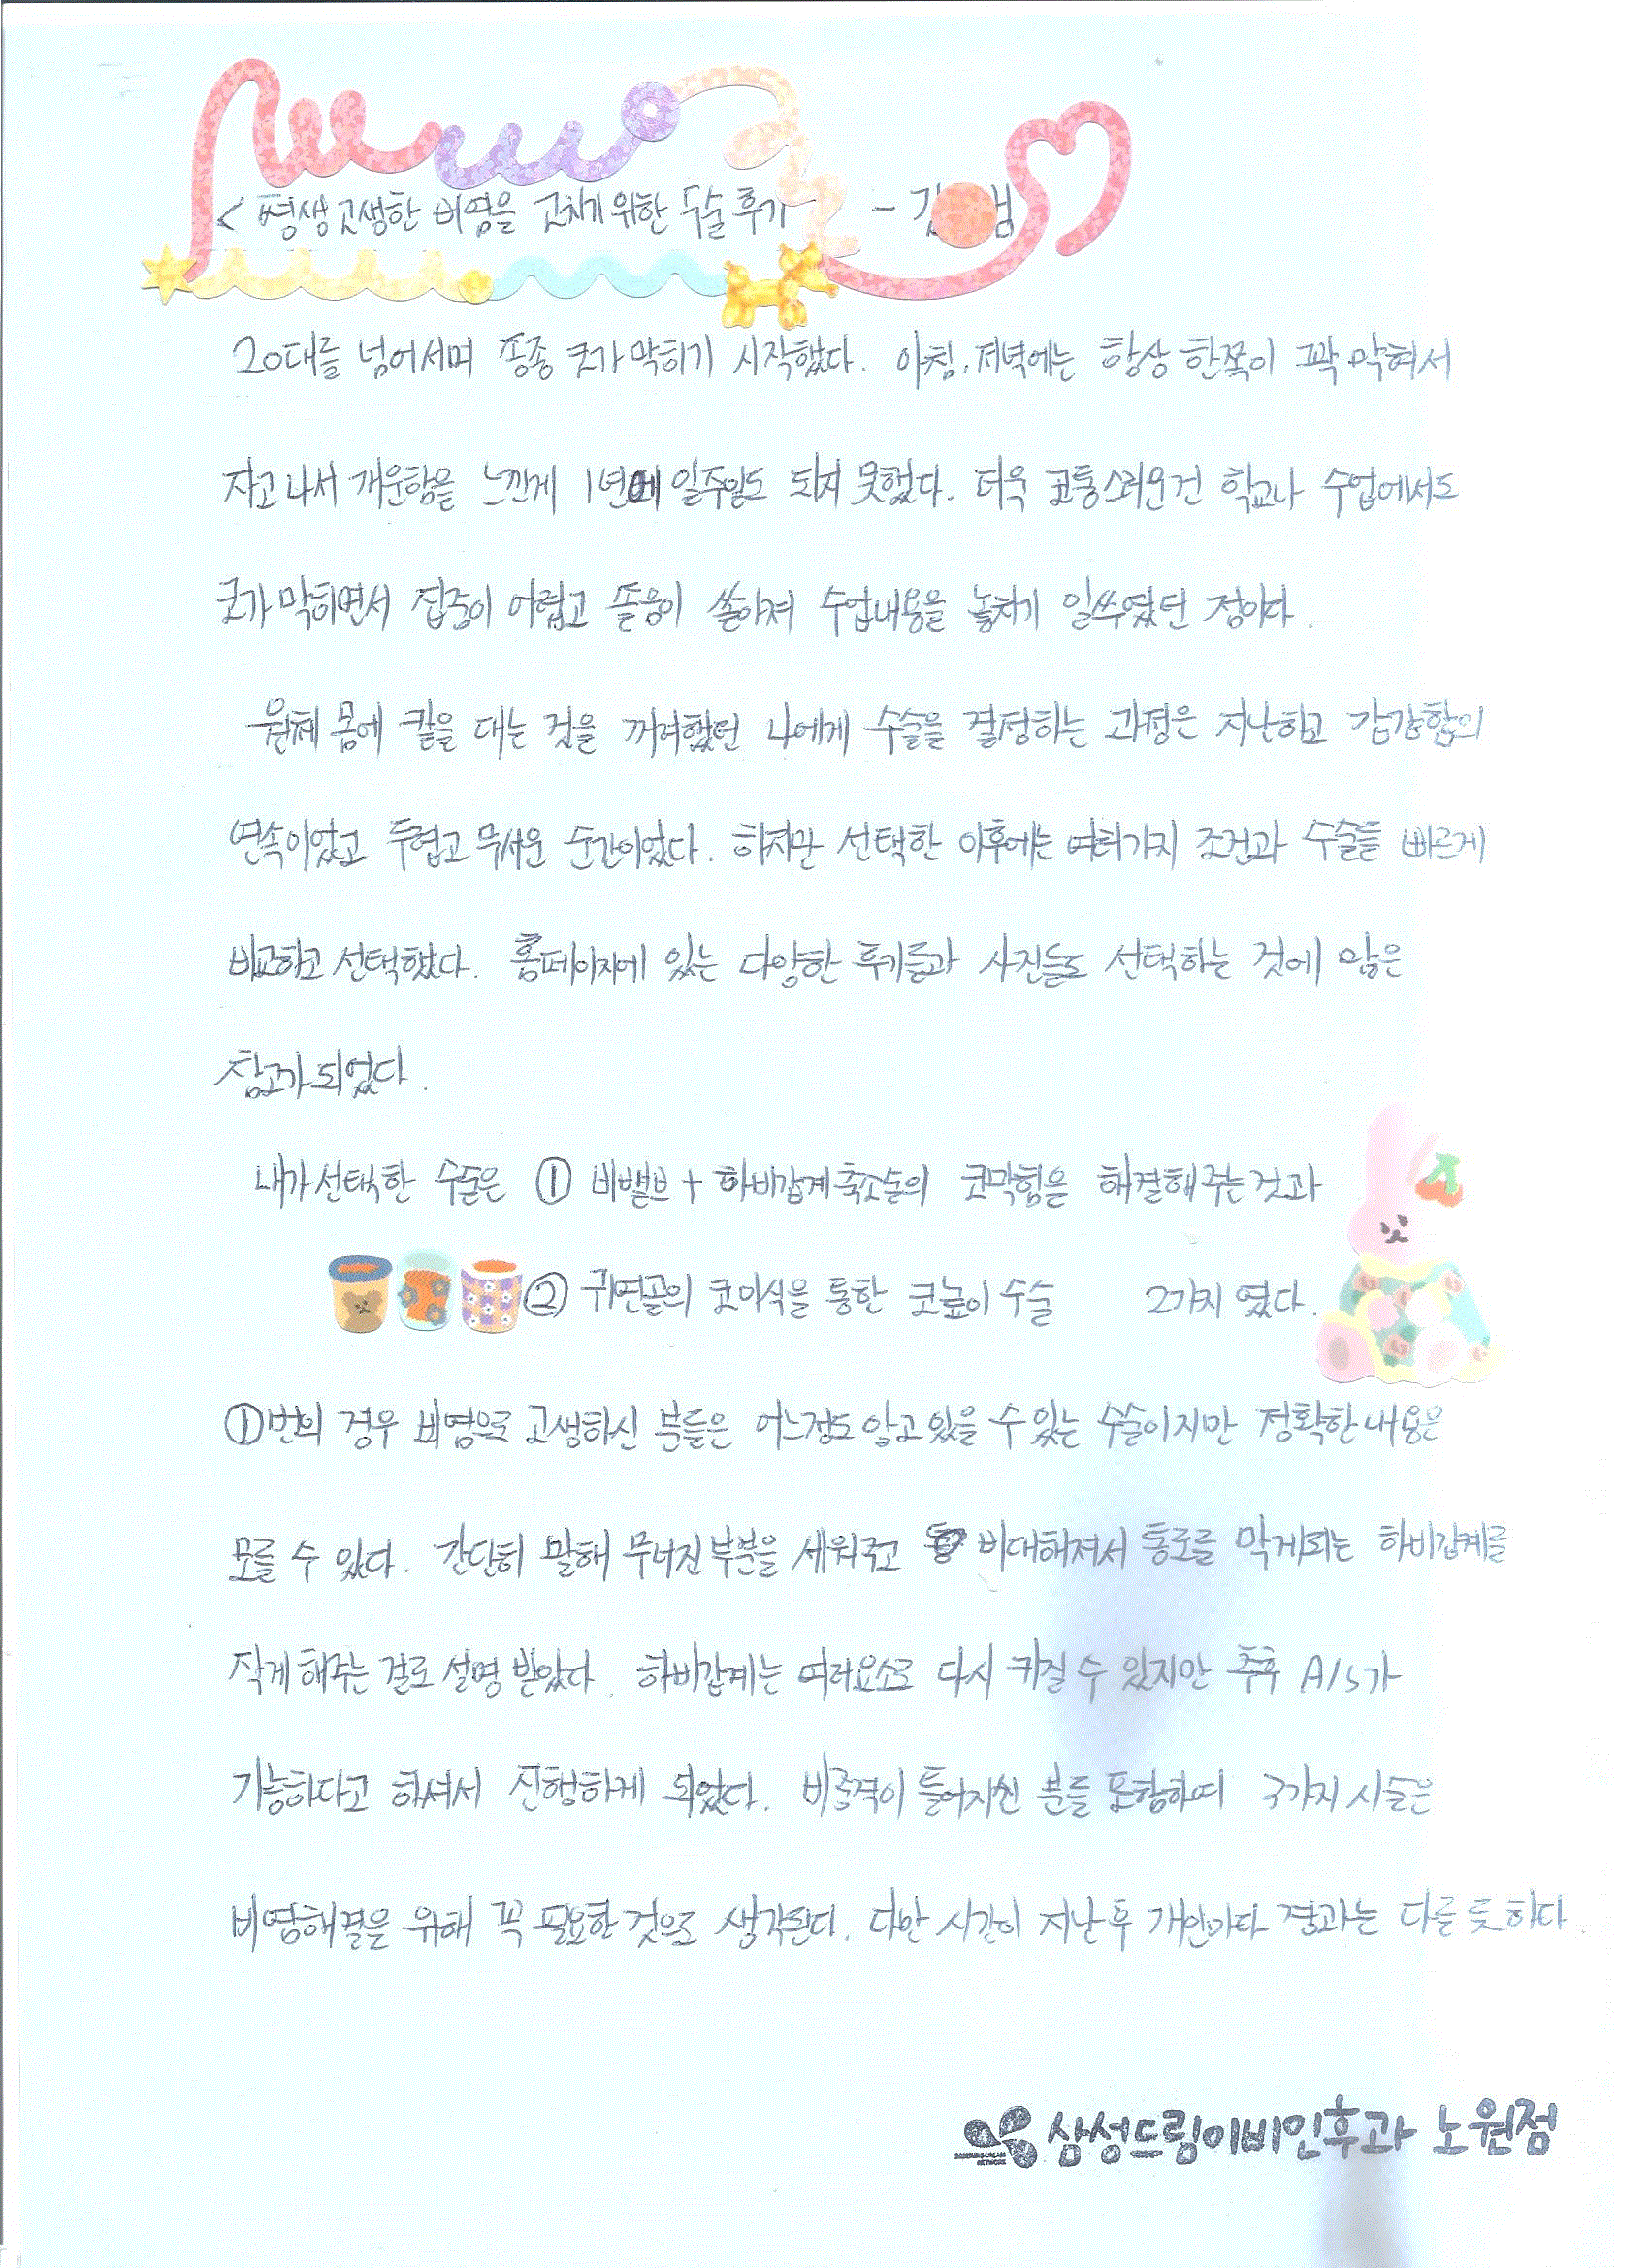 < 평생 고생한 비염을 고치기 위한 수술 후기 - 김
20대를 넘어서며 종종 코가 막히기 시작했다. 아침, 저녁에는 항상 한쪽이 꽉 막혀서
자고 나서 개운함을 느낀게 1년에 일주일도 되지 못했다. 더욱 고통스러운건 학교나 수업에서도
코가 막히면서 집중이 어렵고 졸음이 쏟아져 수업내용을 놓치기 일쑤였던 점이다.
원체 몸에 칼을 대는 것을 꺼려했던 나에게 수술을 결정하는 과정은 지난하고 갑갑함의
연속이었고 두렵고 무서운 순간이었다. 하지만 선택한 이후에는 여러가지 조건과 수술들을 빠르게
비교하고 선택했다. 홈페이지에 있는 다양한 후기들과 사진들도 선택하는 것에 많은
참고가 되었다.
내가 선택한 수술은 ① 비밸브 + 하비갑계축소술의 코막힘을 해결해주는것과
② 귀연골의 코이식을 통한 코높이 수술 2가지 였다.
①번의 경우 비염으로 고생하신 분들은 어느정도 알고 있을 수 있는 수술이지만 정확한 내용은
모를 수 있다. 간단히 말해 무너진 부분을 세워주고 비대해져서 통로를 막게되는 하비갑계를
작게 해주는 걸로 설명 받았다. 하비갑계는 여러요소로 다시 커질 수 있지만 추후 A/S가
가능하다고 하셔서 진행하게 되었다. 비중격이 틀어지신 분들 포함하여 3가지 시술은
비염해결을 위해 꼭 필요한 것으로 생각된다. 다만 시간이 지난 후 개인마다 결과는 다를 듯 하다.
삼성드림이비인후과 노원점